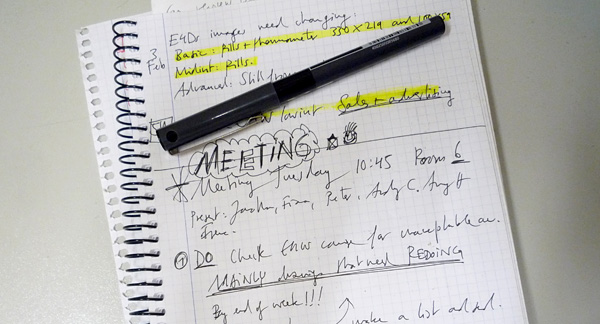 E4Ds images need changing.
3 Feb
Basic: Pills + thermometer 350 x 219 and
Midint: Pills.
Advanced: Still from
lowint Sales + advertising
MEETING
Meeting Tuesday 10:45 Room 6
Present: Jonathan, Fiona, Peter, Andy C. Amy H
① DO Check course for unacceptable
MAINLY drawings that need REDOING
By end of week!!!
make a list